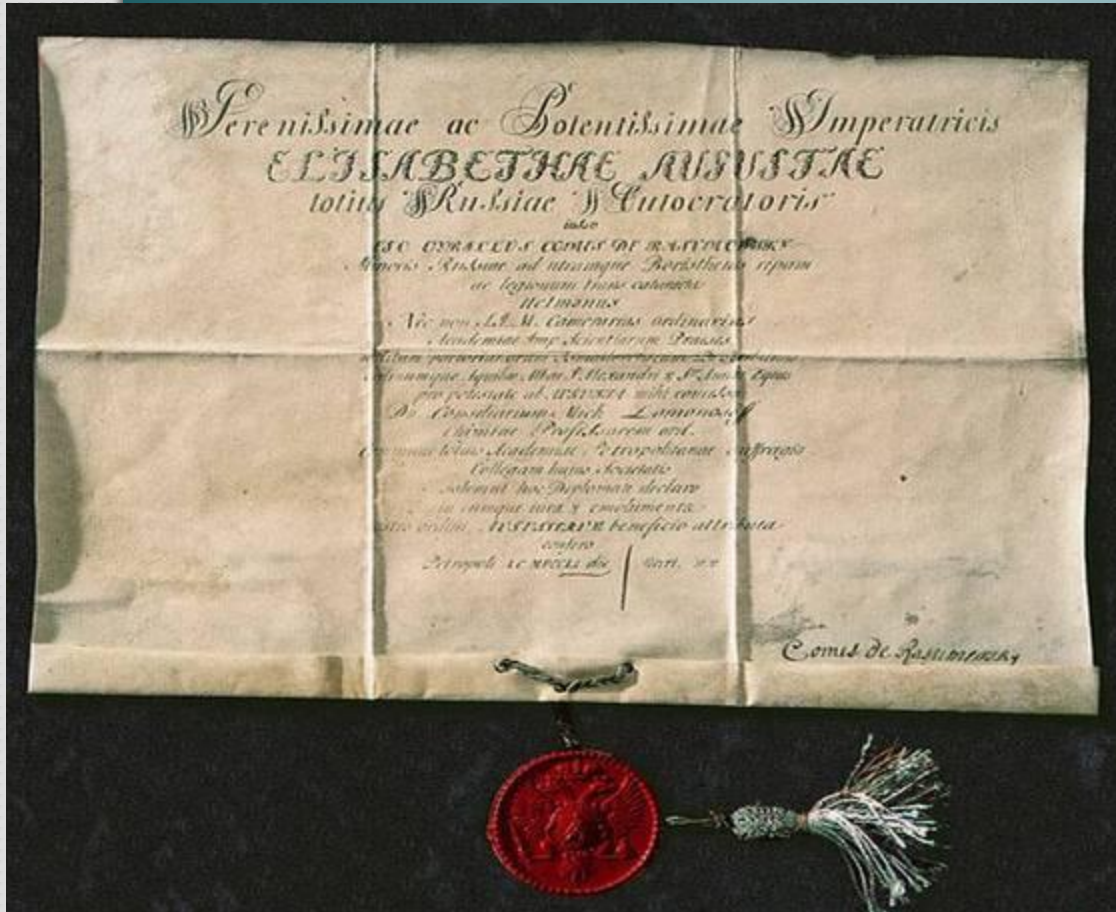 Serenissimae ac Potentissimae Imperatricis
ELISABETHAE AUGUSTAE
totius Russiae Autocratoris
iussu
EGO CYRILLUS COMES DE RASUMOWSKY
Minoris Russiae ad utramque Boristhenis ripam
ac legionum trans
Hetmanus
Nec non S.I.M. Camerarius ordinarius
Academiae Imp Scientiarum Praeses
Ordinumque Aquilae Albae S. Alexandri & Stae Annae Eques
pro potestate ab AUGUSTA mihi concessa
Dn Consiliarium Mich Lomonosoff
Chimiae Professorem ord.
totius Academiae Petropolitanae suffragio
Collegam huius Societatis
solemni hoc Diplomate declaro
in eumque iura & emolumenta
ordini AUGUSTAE beneficio attributa
confero
Petropoli MDCCLI die
Comes de Rasumowsky